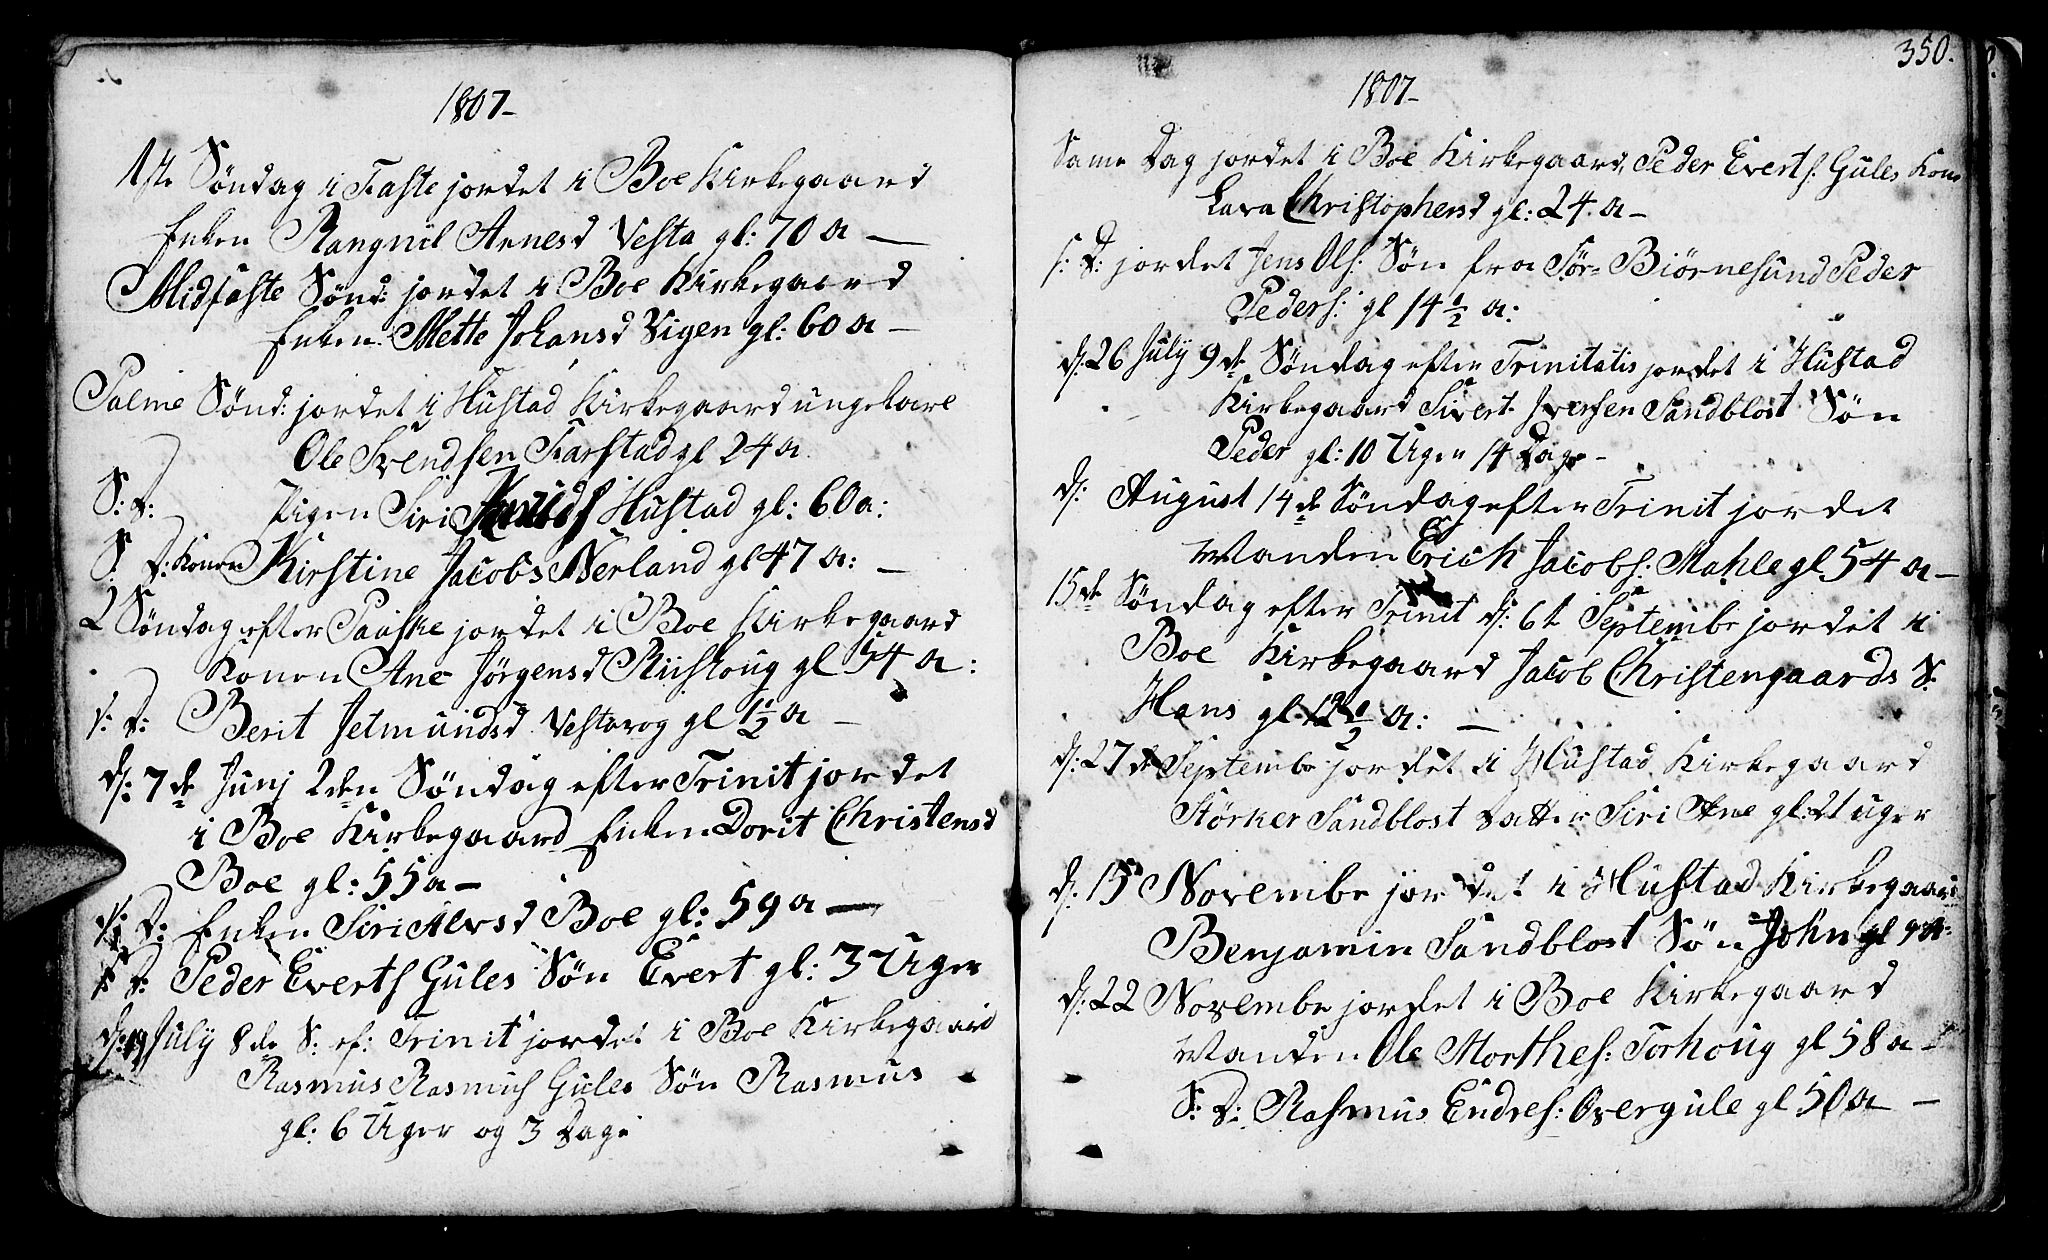 1807-
1ste Søndag i Faste jordet i Boe Kirkegaard
Enken Rangnil Arnesd Vesta gl: 70 a -
Midfaste Sønd: jordet i Boe Kirkegaard
Enken Mette Johansd Vigen gl: 60 a -
Palme Sønd: jordet i Hustad Kirkegaard ungekarl
Ole Svendsen Farstad gl 24 a
S: D: Pigen Siri Hustad gl: 60 a:
S: D: Konen Kirstine Jacobs Nerland gl 47 a: -
2 Søndag efter Paaske jordet i Boe Kirkegaard
Konen Ane Jørgensd Riishoug gl 54 a:
S: D: Berit Jetmundsd Vestavog gl 1½ a -
d: 7de Junj 2den Søndag efter Trinit jordet
i Boe Kirkegaard Enken Dorit Christensd
Boe gl: 55 a -
S: D: Enken Siri Alvsd Boe gl: 59 a -
S: D: Peder Everts Gules Søn Evert gl: 3 Uger
d: 19 July 8de S: ef: Trinit jordet i Boe Kirkegaard
Rasmus Rasmus Gules Søn Rasmus
gl: 6 Uger og 3 Dage
350.
1807-
Same Dag jordet i Boe Kirkegaard, Peder Everts: Gules Kone
Lava Christophersd gl: 24. a -
S: D: jordet Jens Ols: Søn fra Sør- Biørnesund Peder
Peders: gl 14 ½ a:
d: 26 July 9de Søndag efter Trinitatis jordet i Hustad
Kirkegaard Sivert Iversen Sandblost Søn
Peder gl: 10 Ugen 14 Dage -
d: August 14de Søndag efter Trinit jordet
Manden Erich Jacobs: Mahle gl 54 a -
15de Søndag efter Trinit d: 6t Septembr jordet i
Boe Kirkegaard Jacob Christengaards S:
Hans gl: ½ a: -
d: 27de Septembr jordet i Hustad Kirkegaard
Størker Sandblost Datter Siri Ane gl: 21 uger
d: 15 Novembr jordet i Hustad Kirkegaard
Benjamin Sandblost Søn John gl 9 a:
d: 22 Novembr jordet i Boe Kirkegaard
Manden Ole Morthes: Torhoug gl 58 a -
S: D: Rasmus Endres: Overgule gl 50 a -